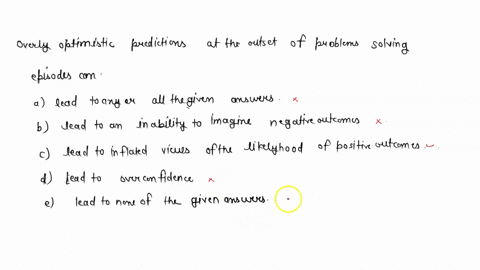 Overly optimistic predictions at the outset of problems solving
episodes can.
a) lead to any or all the given answers. ×
b) lead to an inability to Imagine negative outcomes ×
c) lead to inflated views of the likelyhood of positive outcomes
d) lead to over confidence ×
e) lead to none of the given answers.